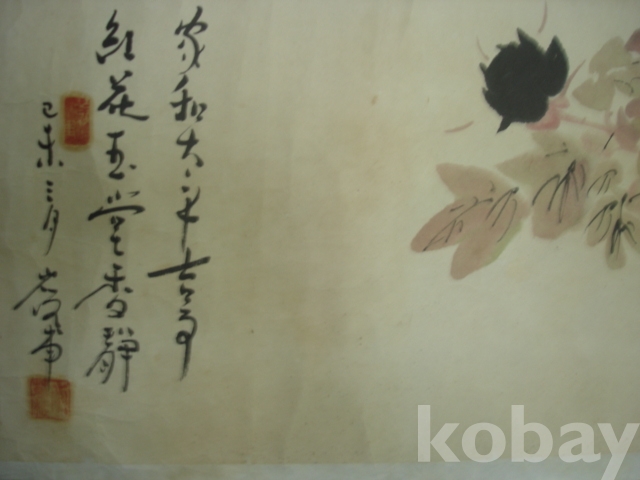 家和太平吉
紅花玉堂香靜
己未三月
kobay